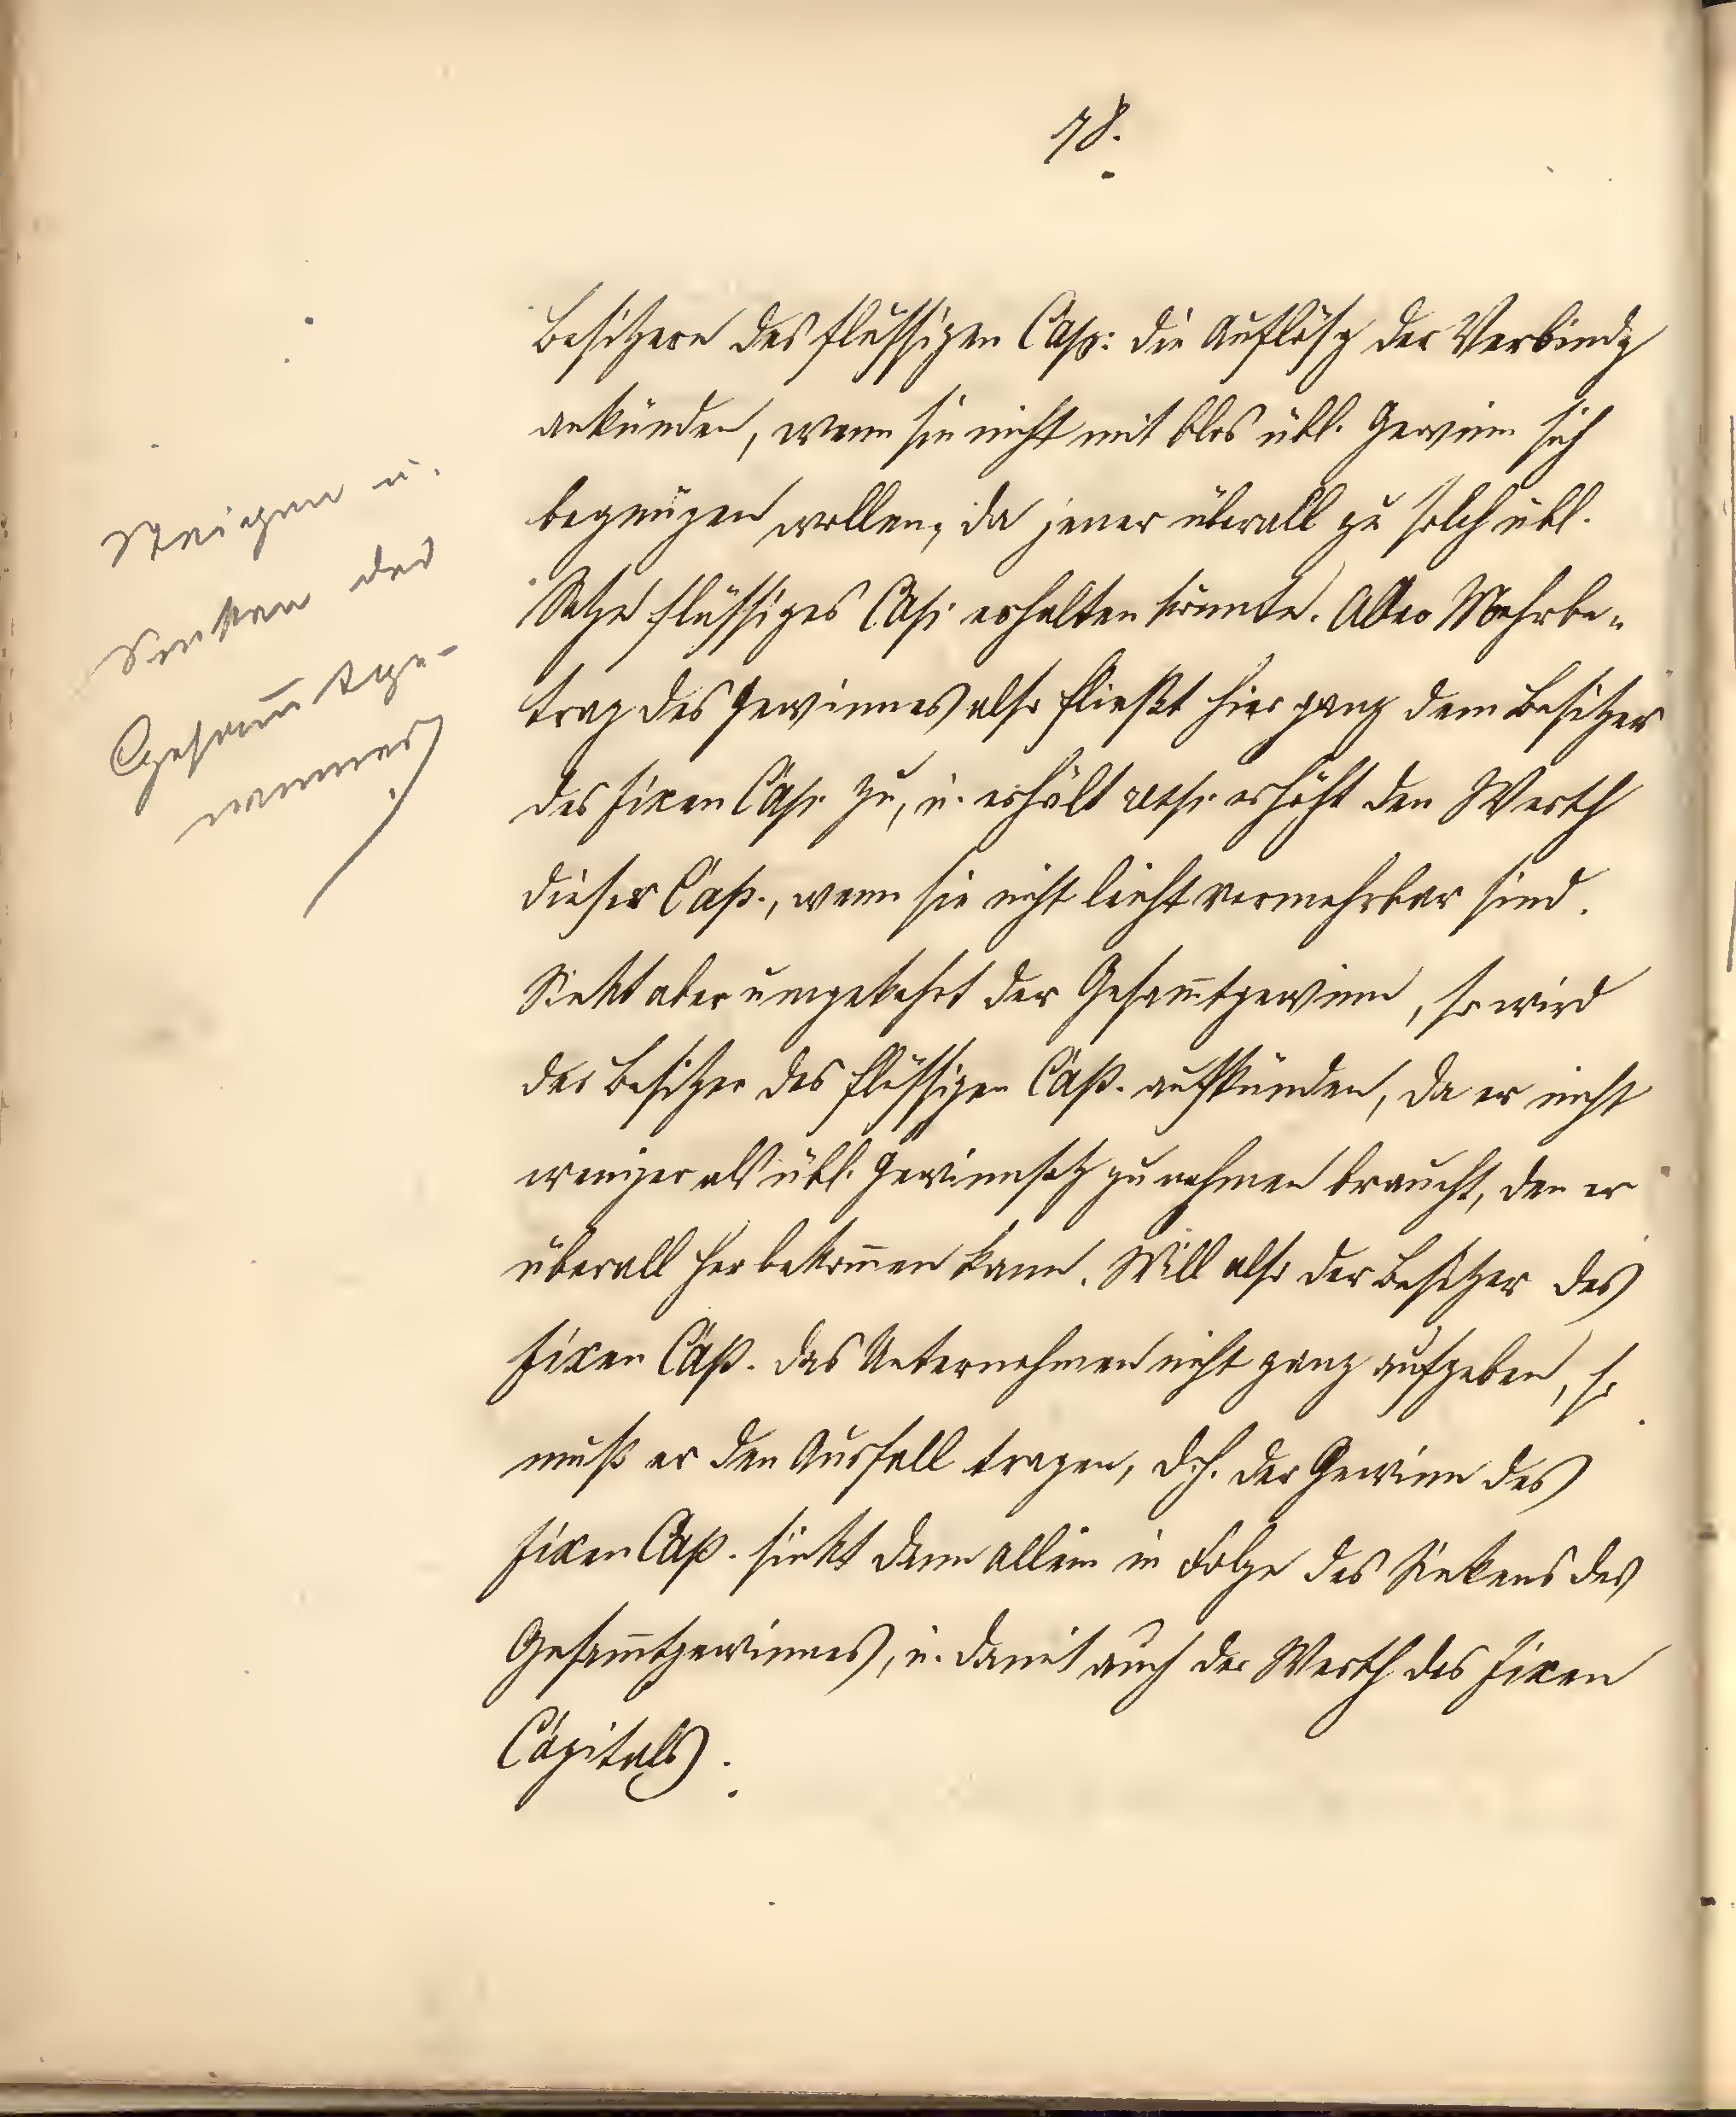 78.
Steigen u.
Sinken des
Gesam̅tge-
winnes
Besitzern des flüssigen Cap: die Auflösg der Verbindg
ankünden, wenn sie nicht mit blos übl. Gewinn sich
begnügen wollen, da jener überall zu solch übl.
Satze flüssiges Cap. erhalten könnte. Aller Mehrbe-
trag des Gewinnes also fließt hier ganz dem Besitzer
des fixen Cap. zu, u. erhält resp. erhöht den Werth
dieser Cap., wenn sie nicht leicht vermehrbar sind.
Sinkt aber umgekehrt der Gesam̅tgewinn, so wird
der Besitzer des flüssigen Cap. aufkünden, da er nicht
weniger als übl. Gewinnsatz zu nehmen braucht, den er
überall her bekom̅en kann. Will also der Besitzer des
fixen Cap. das Unternehmen nicht ganz aufgeben, so
muß er den Ausfall tragen, d.h. der Gewinn des
fixen Cap. sinkt dann allein in Folge des Sinkens des
Gesam̅tgewinnes, u. damit auch der Werth des fixen
Capitals.